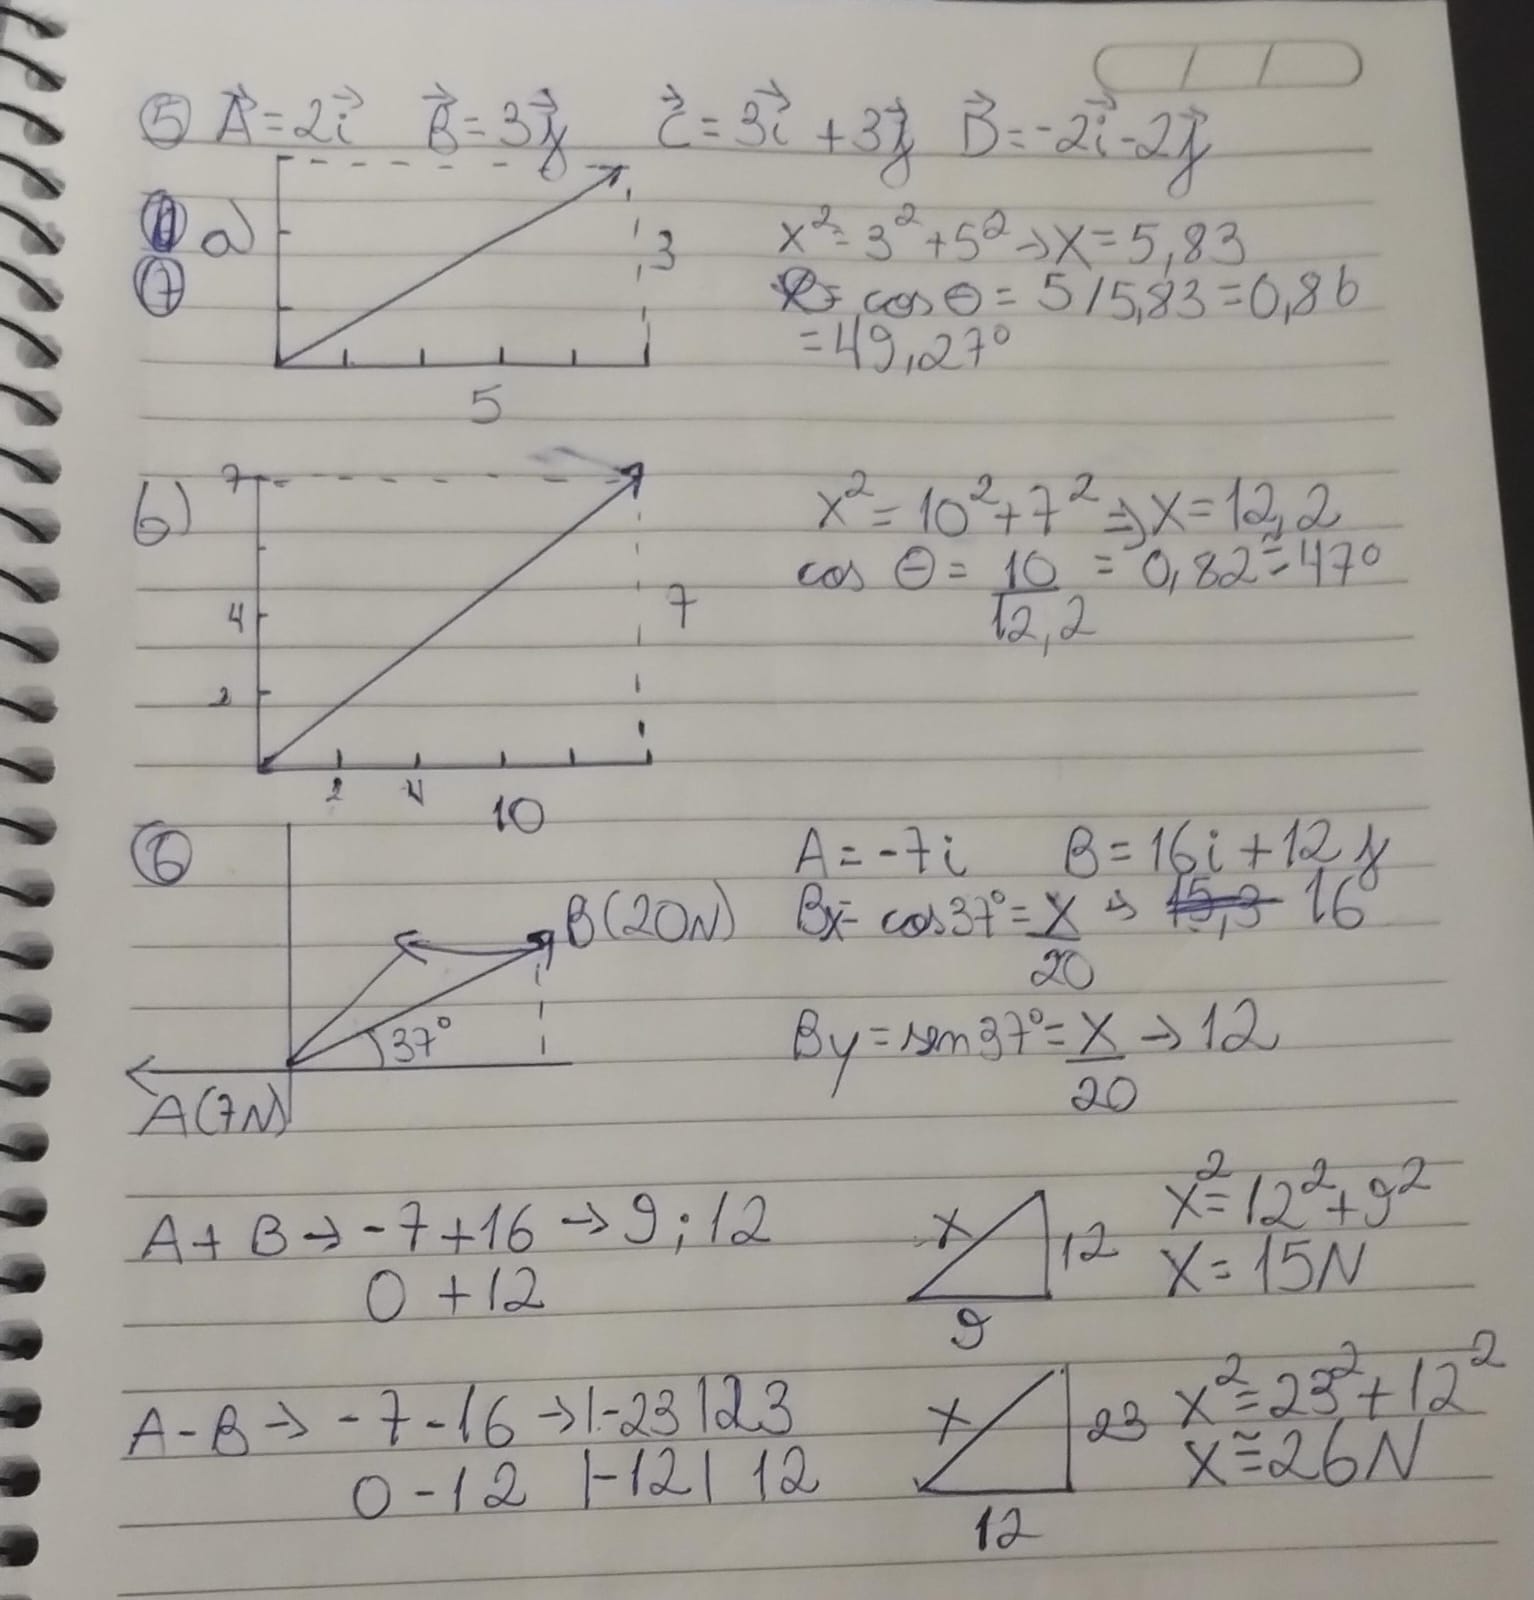 ⑤ A⃗ = 2i⃗ B⃗ = 3j⃗ C⃗ = 3i⃗ + 3j⃗ D⃗ = -2i⃗ - 2j⃗
⑦ a)
3
5
x² = 3² + 5² → x = 5,83
cos θ = 5/5,83 = 0,86
= 49,27°
b)
7
4
2
2 4
10
7
x² = 10² + 7² ⇒ x = 12,2
cos θ = 10/12,2 = 0,82 ≅ 47°
⑥
B(20N)
37°
A(7N)
A = -7i B = 16i + 12j
Bx = cos 37° = x/20 → 15,3 16
By = sen 37° = x/20 → 12
A + B → -7 + 16 → 9 ; 12
0 + 12
x 12
9
x² = 12² + 9²
x = 15N
A - B → -7 - 16 → |-23| 23
0 - 12 |-12| 12
x 23
12
x² = 23² + 12²
x ≅ 26N